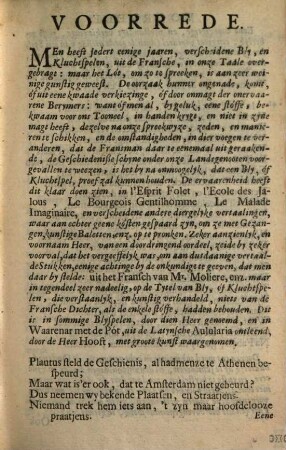 VOORREDE.
MEn heeft sedert eenige jaaren, verscheidene Bly, en
Kluchtspelen, uit de Fransche, in onze Taale over-
gebragt: maar het Lót, om zo te spreeken, is aan zeer wei-
nige gunstig geweest. De oorzaak hunner ongenade, komt,
óf uit eene kwaade verkiezinge, óf door onmagt der onervaare
Berymers: want óf men al, bygeluk, eene stóffe, be-
kwaam voor ons Tooneel, in handen krygt, en niet in zyne
magt heeft, dezelve na onze spreekwyze, zeden, en manie-
ren te schikken, en de omstandigheden in dier voegen te ver-
anderen, dat de Fransman daar te eenemaal uit geraakende,
de Geschiedenisse schyne onder onze Landsgenooten voor-
gevallen te weezen, is het by na onmogelyk, dat een Bly, óf
Kluchtspel, proef zal kunnen houden. De ervaarenheid heeft
dit klaar doen zien, in l'Esprit Folet, l'Ecole des Ja-
lous, Le Bourgeois Gentilhomme, Le Malade
Imaginaire, en verscheidene andere diergelyke vertaalingen,
waar aan echter geene kósten gespaard zyn, om ze met Gezan-
gen, kunstige Balétten, enz. op te pronken. Zeker aanzienlyk, en
voornaam Heer, van een doordringend oordeel, zeide by zeker
voorval, dat het vergeeffelyk was, om aan dusdaanige vertaal-
de Stukken, eenige achtinge by de onkundige te geeven, dat men
daar by stelde: uit het Fransch van Mr. Moliere, enz. maar
in tegendeel zeer nadeelig, op de Tytel van Bly, óf Kluchtspe-
len, die verstaanlyk, en kunstig verhandeld, niets van de
Fransche Dichter, als de enkele stóffe, hadden behouden. Dit
is in sommige Blyspelen, door dien Heer gemeend, en in
Waarenar met de Pót, uit de Latynsche Aulularia ontleend,
door de Heer Hooft, met groote kunst waargenomen.
Plautus steld de Geschienis, al hadmenze te Athenen be-
speurd;
Maar wat is'er ook, dat te Amsterdam niet gebeurd?
Dus neemen wy bekende Plaatsen, en Straatjens.
Niemand trek hem iets aan, 't zyn maar hoofdelooze
praatjens.
Eene